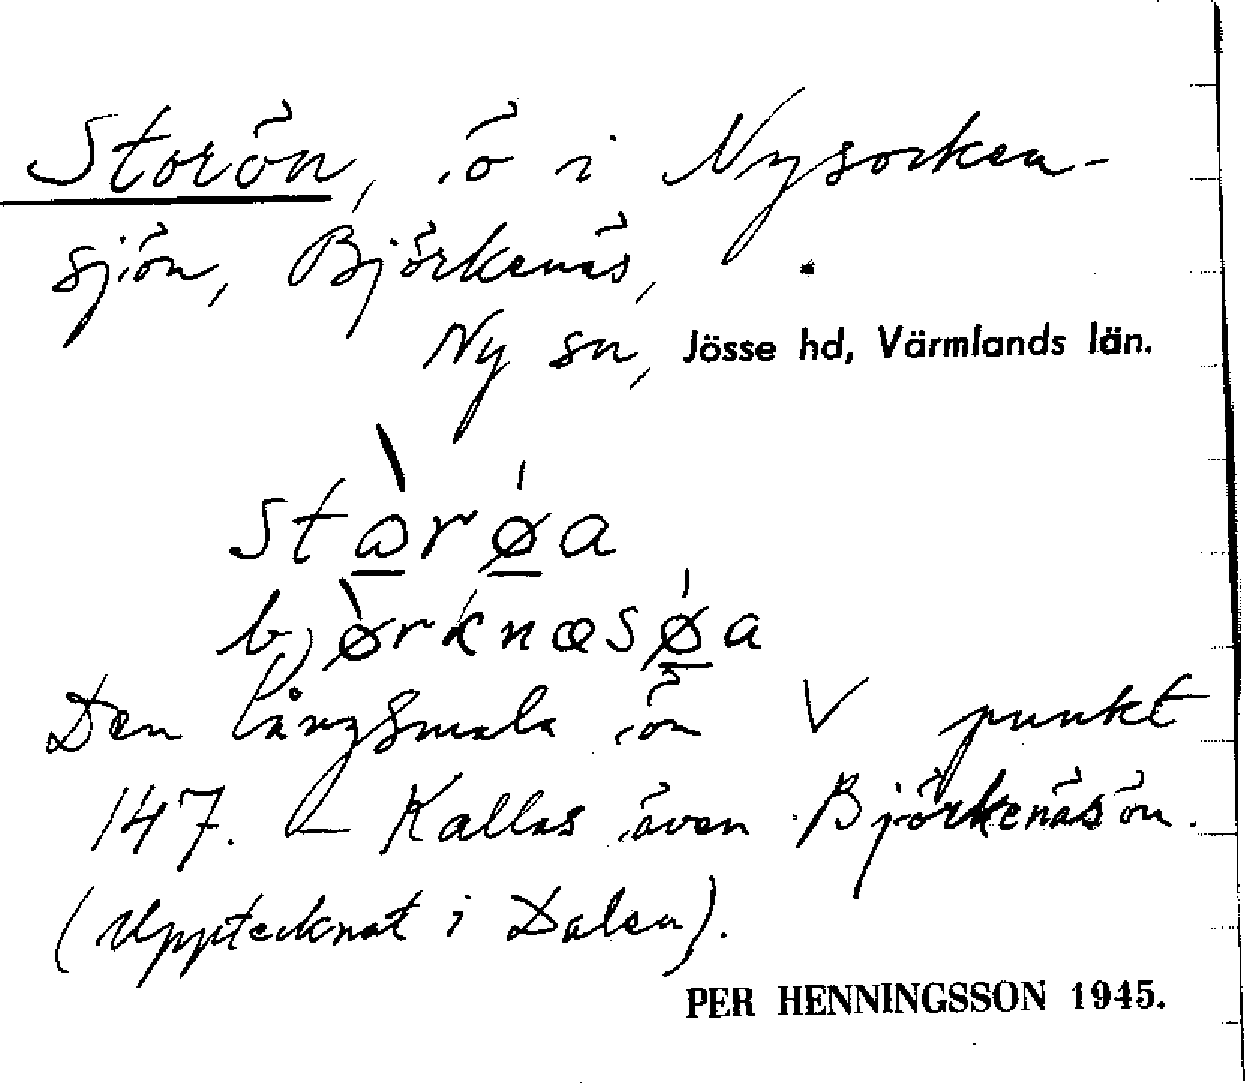 Storön, ö i Nysocken-
sjön, Björkenäs,
Ny sn, Jösse hd, Värmlands län.
stɷ̀rǿa
bjø̀rknæsǿa
Den långsmala ön V punkt
147. – Kallas även Björkenäsön.
(Upptecknat i Dalen).
PER HENNINGSSON 1945.